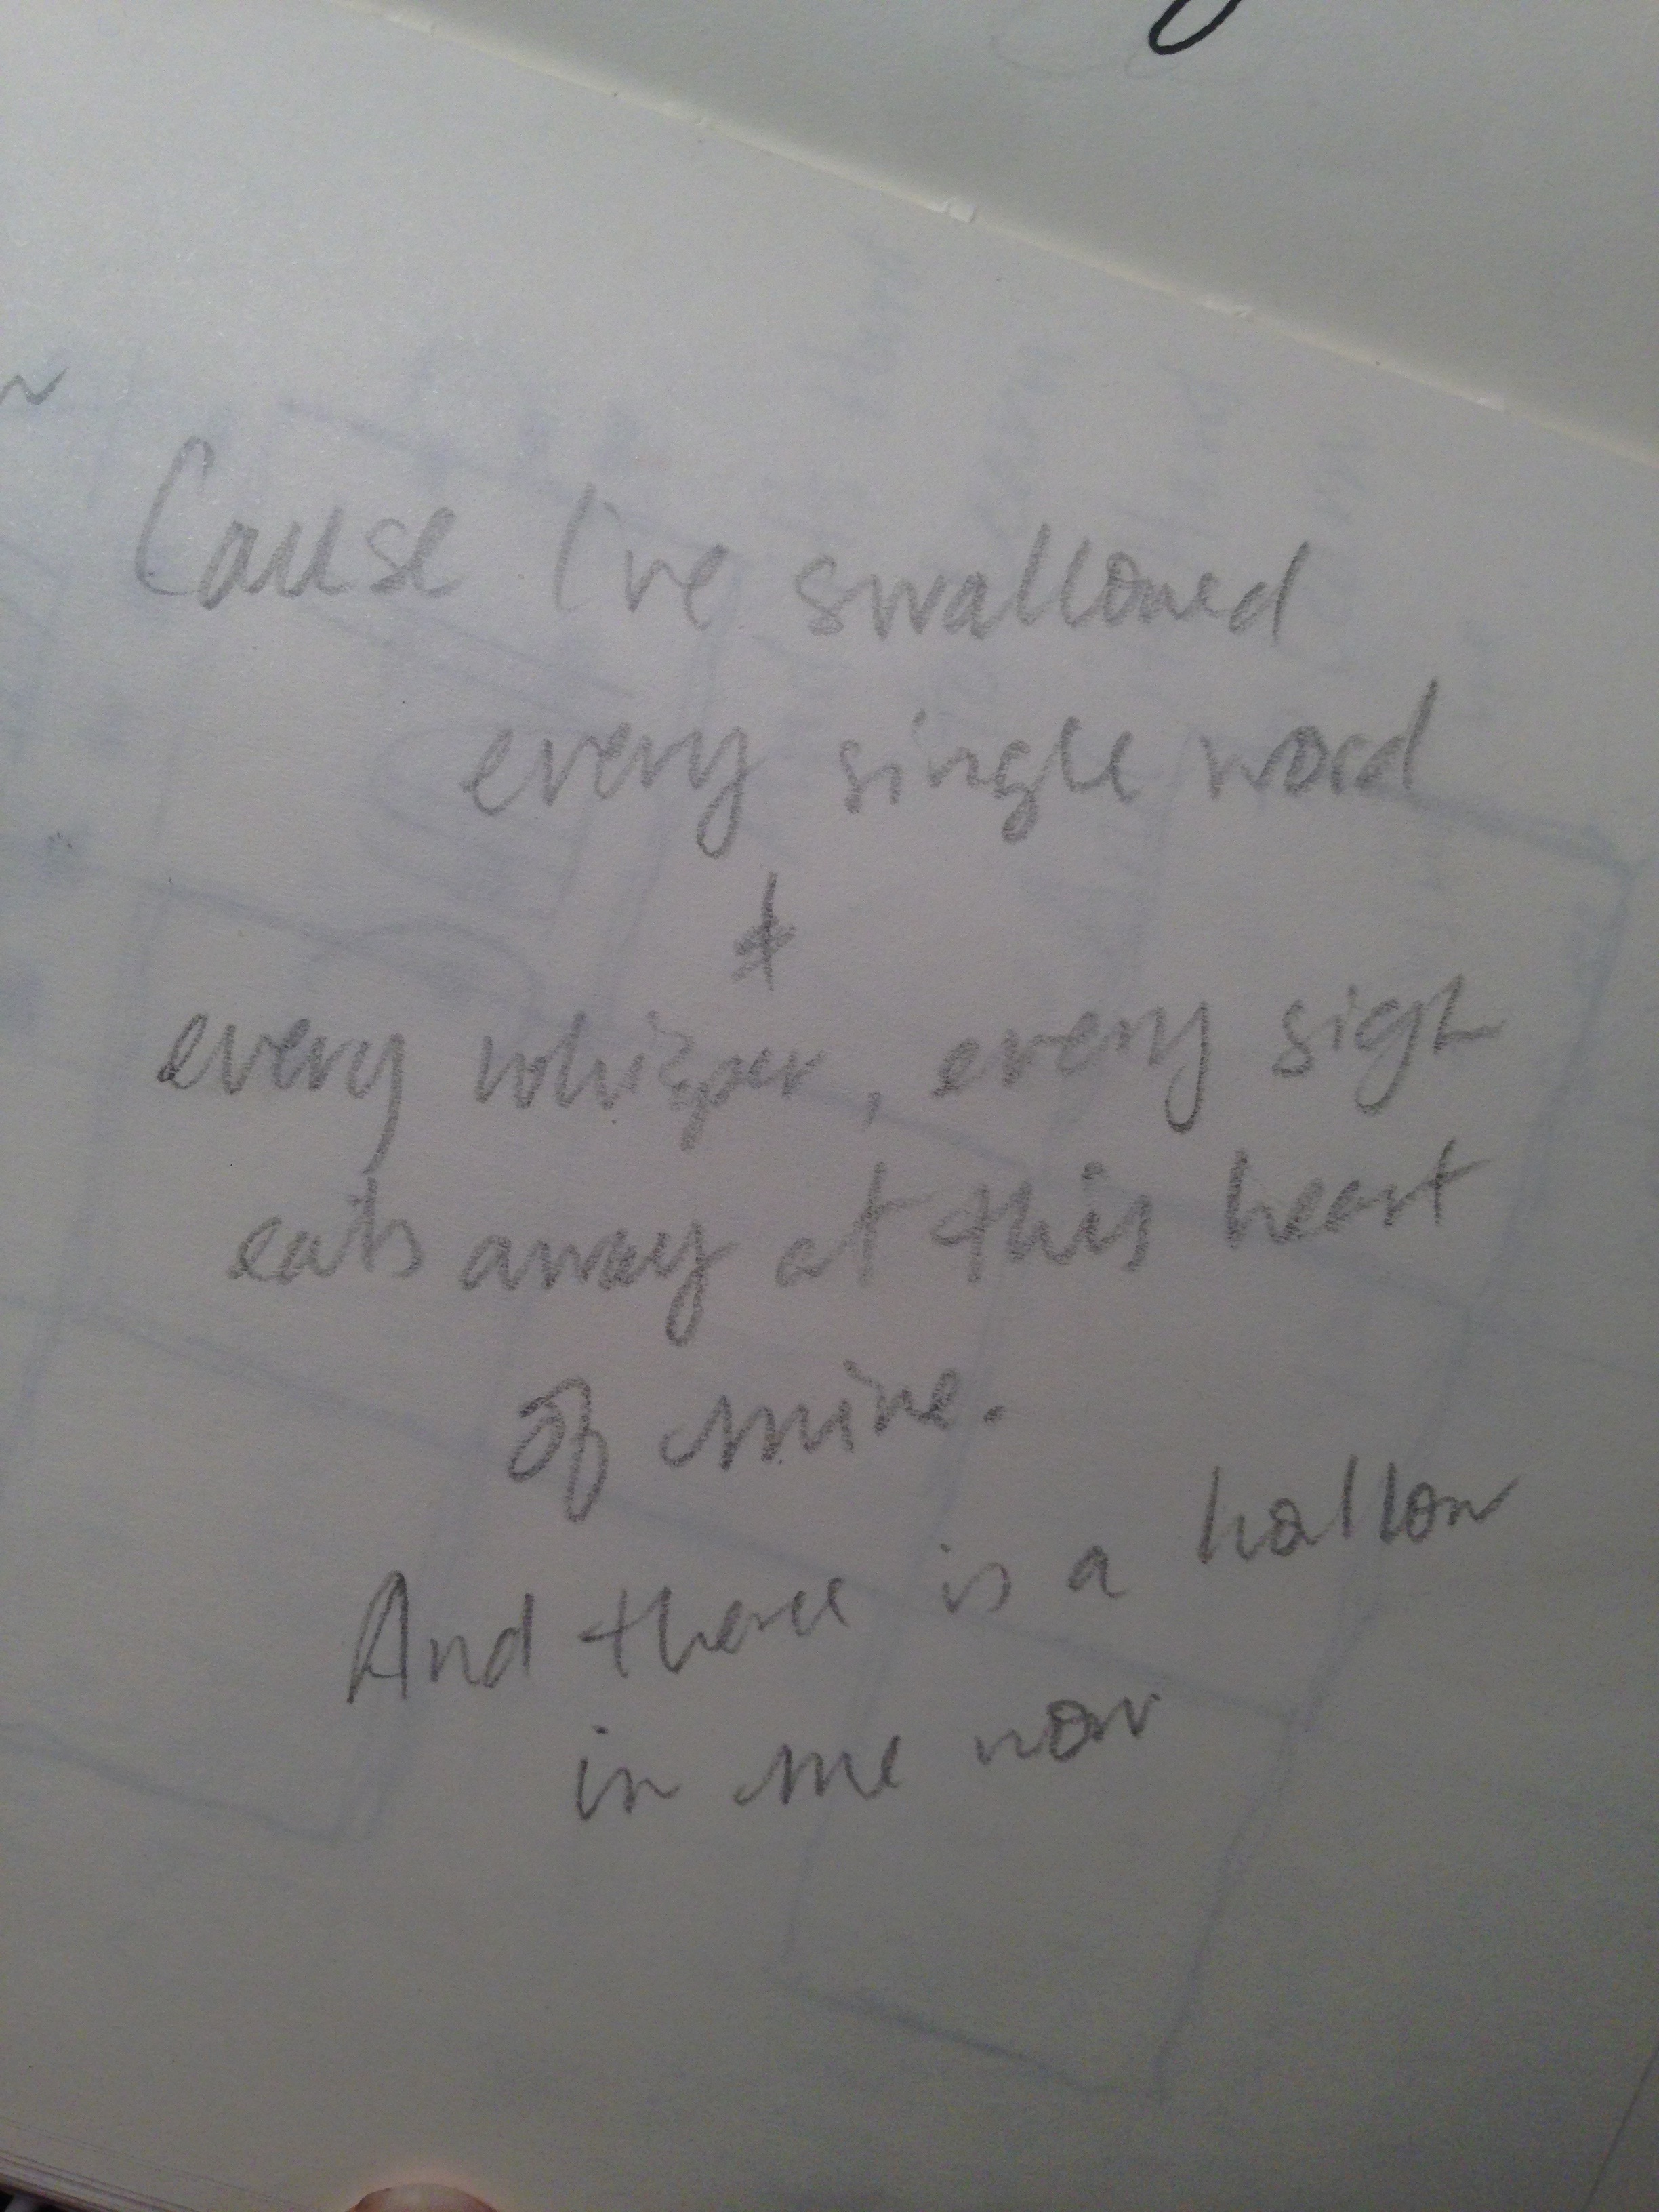 Cause I've swallowed
every single word
+
every whisper, every sigh
eats away at this heart
of mine.
And there is a hollow
in me now